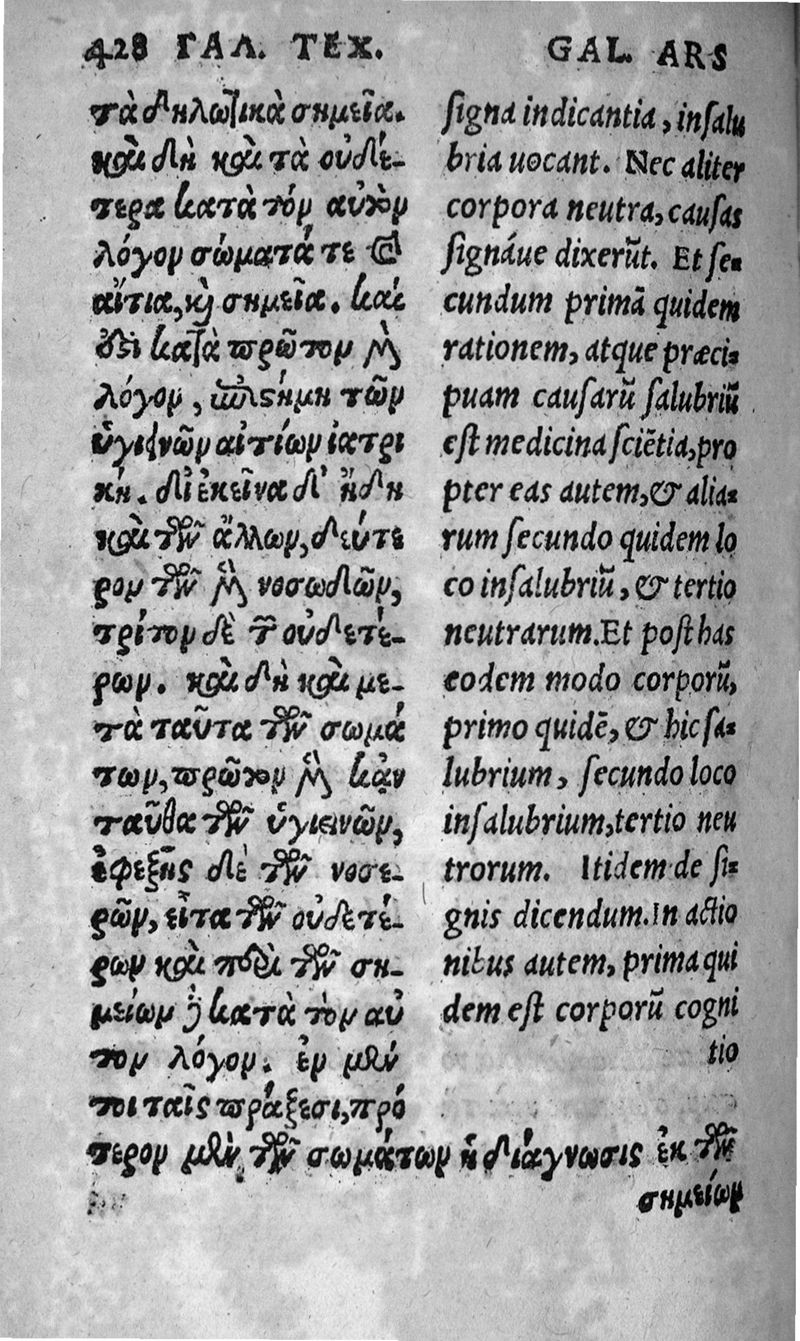 428 ΓΑΛ. ΤΕΧ.
τὰ δηλωτικὰ σημεῖα.
καὶ δὴ καὶ τὰ οὐδέ-
τερα κατὰ τὸν αὐτὸν
λόγον σώματά τε καὶ
αἴτια, καὶ σημεῖα. καὶ
δὴ κατὰ πρῶτον μὲν
λόγον, ἐπιστήμη τῶν
ὑγιεινῶν αἰτίων ἰατρι
κή. δι ἐκεῖνα δ' ἤδη
καὶ τῶν ἄλλων, δεύτε
ρον τῶν μὲν νοσωδῶν,
τρίτον δὲ τῶν οὐδετέ-
ρων. καὶ δὴ καὶ με-
τὰ ταῦτα τῶν σωμά
των, πρῶτον μὲν κἀν
ταῦθα τῶν ὑγιεινῶν,
ἐφεξῆς δὲ τῶν νοσε-
ρῶν, εἶτα τῶν οὐδετέ-
ρων καὶ περὶ τῶν ση-
μείων ἢ κατὰ τὸν αὐ
τὸν λόγον. ἐν μέν
τοι ταῖς πράξεσι, πρό
τερον μὲν τῶν σωμάτων ἡ διάγνωσις ἐκ τῶν
σημείων
GAL. ARS
signa indicantia, insalu
bria uocant. Nec aliter
corpora neutra, causas
signáue dixerūt. Et se-
cundum primā quidem
rationem, atque præci-
puam causarū salubriū
est medicina sciētia, pro
pter eas autem, & alia-
rum secundo quidem lo
co insalubriū, & tertio
neutrarum. Et post has
eodem modo corporū,
primo quidē, & hic sa-
lubrium, secundo loco
insalubrium, tertio neu
trorum. Itidem de si-
gnis dicendum. In actio
nibus autem, prima qui
dem est corporū cogni
tio